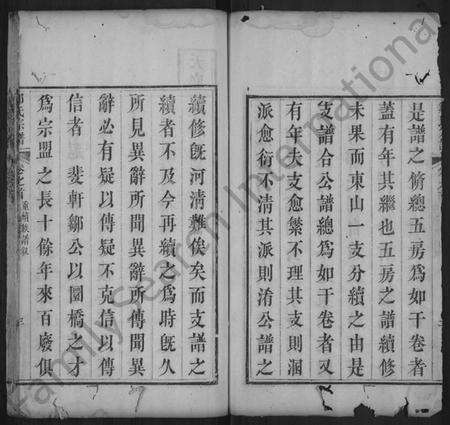 是譜之脩總五房爲如干卷者
蓋有年其繼也五房之譜續修
未果而東山一支分續之由是
支譜合公譜總爲如干卷者又
有年夫支愈繁不理其支則涸
派愈衍不清其派則淆公譜之
續修旣河清難俟矣而支譜之
續者不及今再續之爲時旣久
所見異辭所聞異辭所傳聞異
辭必有疑以傳疑不克信以傳
信者 斐軒鄒公以圜橋之才
爲宗盟之長十餘年來百廢俱
氏宗譜
FamilySearch International